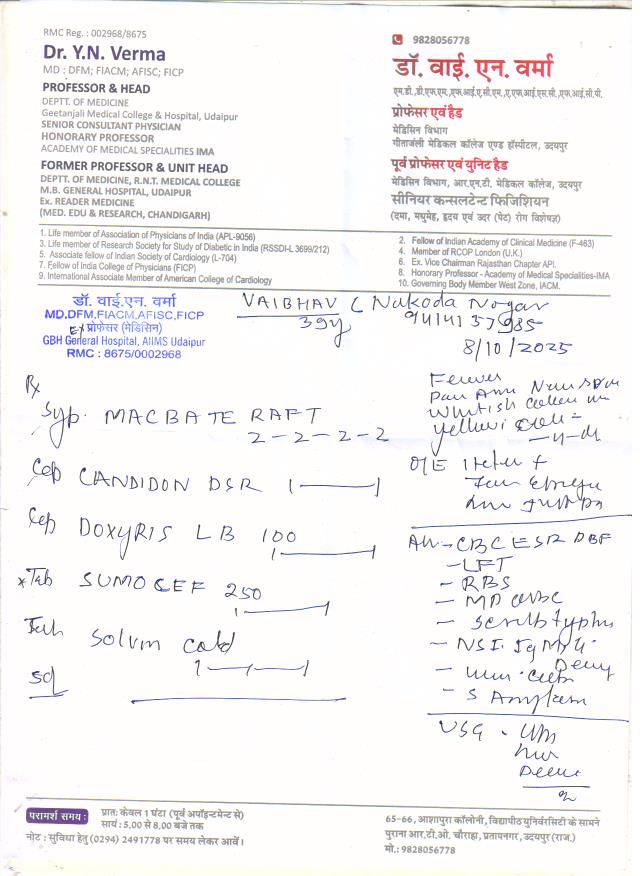 RMC Reg. : 002968/8675
Dr. Y.N. Verma
MD : DFM; FIACM; AFISC; FICP
PROFESSOR & HEAD
DEPTT. OF MEDICINE
Geetanjali Medical College & Hospital, Udaipur
SENIOR CONSULTANT PHYSICIAN
HONORARY PROFESSOR
ACADEMY OF MEDICAL SPECIALITIES IMA
FORMER PROFESSOR & UNIT HEAD
DEPTT. OF MEDICINE, R.N.T. MEDICAL COLLEGE
M.B. GENERAL HOSPITAL, UDAIPUR
Ex. READER MEDICINE
(MED. EDU & RESEARCH, CHANDIGARH)
9828056778
डॉ. वाई. एन. वर्मा
एम.डी.,डी.एफ.एम.,एफ.आई.ए.सी.एम.,ए.एफ.आई.एस.सी.,एफ.आई.सी.पी.
प्रोफेसर एवं हैड
मेडिसिन विभाग
गीतांजली मेडिकल कॉलेज एण्ड हॉस्पीटल, उदयपुर
पूर्व प्रोफेसर एवं युनिट हैड
मेडिसिन विभाग, आर.एन.टी. मेडिकल कॉलेज, उदयपुर
सीनियर कन्सलटेन्ट फिजिशियन
(दमा, मधुमेह, हृदय एवं उदर (पेट) रोग विशेषज्ञ)
1. Life member of Association of Physicians of India (APL-9056)
3. Life member of Research Society for Study of Diabetic in India (RSSDI-L 3699/212)
5. Associate fellow of Indian Society of Cardiology (L-704)
7. Fellow of India College of Physicians (FICP)
9. International Associate Member of American College of Cardiology
2. Fellow of Indian Academy of Clinical Medicine (F-463)
4. Member of RCOP London (U.K.)
6. Ex. Vice Chairman Rajasthan Chapter API.
8. Honorary Professor - Academy of Medical Specialities-IMA
10. Governing Body Member West Zone, IACM.
डॉ. वाई.एन. वर्मा
MD,DFM,FIACM,AFISC,FICP
Ex प्रोफेसर (मेडिसिन)
GBH General Hospital, AIIMS Udaipur
RMC : 8675/0002968
VAIBHAV C Nakoda Nagar
39y
9414137985
8/10/2025
Rx
Syp. MACBATE RAFT
2-2-2-2
Cap CANDIDON DSR 1
Cap DOXYRIS LB 100
1
x Tab SUMOCEF 250
1
Tab Solvin cold
1
Fever
O/E
CBC ESR PBF
- LFT
- RBS
- MP
- Scrub typhus
- NS1. IgM
- S Amylase
USG -
परामर्श समय :
प्रातः केवल 1 घंटा (पूर्व अपॉइन्टमेन्ट से)
सायं : 5.00 से 8.00 बजे तक
नोट : सुविधा हेतु (0294) 2491778 पर समय लेकर आवें।
65-66, आशापुरा कॉलोनी, विद्यापीठ युनिवरसिटी के सामने
पुराना आर.टी.ओ. चौराहा, प्रतापनगर, उदयपुर (राज.)
मो.: 9828056778